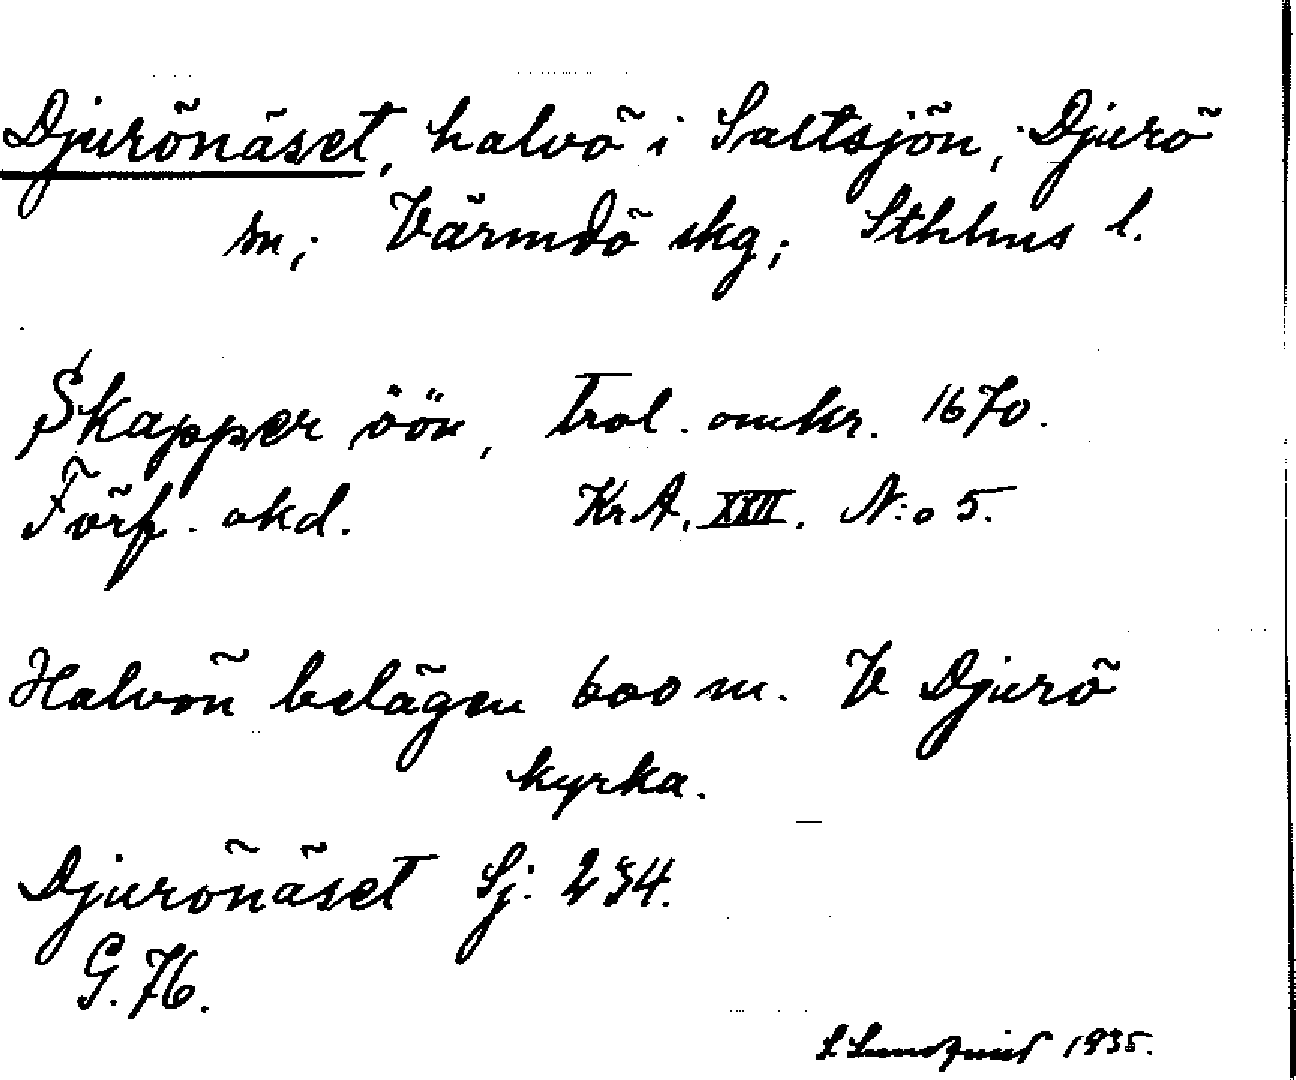 Djurönäset, halvö i Saltsjön, Djurö
sn; Värmdö skg; Sthlms l.
Skapper öön, trol. omkr. 1670.
Förf. okd. KrA. XXII. N:o 5.
Halvön belägen 600 m. V Djurö
kyrka.
Djurönäset Sj. 234.
G. 76.
S. Lundquist 1935.